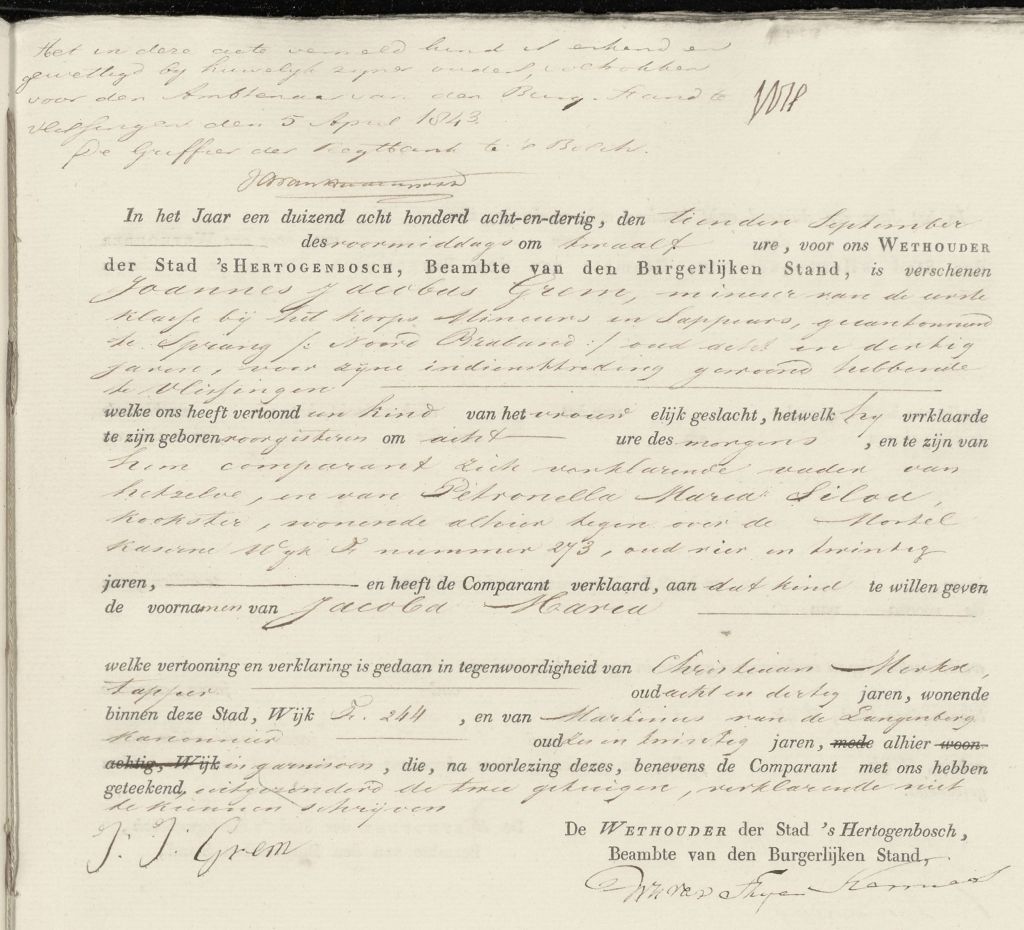 Het in deze acte vermeld kind is erkend en
gewettigd by huwelyk zyner ouders, voltrokken
voor den Ambtenaar van den Burg. Stand te
Vlissingen den 5 April 1843.
De Griffier der Regtbank te 's Bosch.
In het Jaar een duizend acht honderd acht-en-dertig, den tienden September
des voormiddags om twaalf ure, voor ons WETHOUDER
der Stad 's HERTOGENBOSCH, Beambte van den Burgerlijken Stand, is verschenen
Joannes Jacobus Grem, mineur van de eerste
klasse bij het Korps Mineurs en Sappeurs, gecantonneerd
te Sprang /: Noord Braband :/ oud acht en dertig
jaren, voor zyne indiensttreding gewoond hebbende
te Vlissingen
welke ons heeft vertoond een kind van het vrouw elijk geslacht, hetwelk hy vrrklaarde
te zijn geboren voorgisteren om acht ure des morgens , en te zijn van
hem comparant zich verklarende vader van
hetzelve, en van Petronella Maria Silou,
kookster, wonende alhier tegen over de Mortel
kaserne Wyk F nummer 273, oud vier en twintig
jaren, en heeft de Comparant verklaard, aan dat kind te willen geven
de voornamen van Jacoba Maria
welke vertooning en verklaring is gedaan in tegenwoordigheid van Christiaan Merkx,
tapper oud acht en dertig jaren, wonende
binnen deze Stad, Wijk F. 244 , en van Martinus van de Langenberg
kanonnier oud zes en twintig jaren, mede alhier woon-
achtig, Wijk in garnisoen, die, na voorlezing dezes, benevens de Comparant met ons hebben
geteekend, uitgezonderd de twee getuigen, verklarende niet
te kunnen schrijven
De WETHOUDER der Stad 's Hertogenbosch,
J. J. Grem
Beambte van den Burgerlijken Stand,